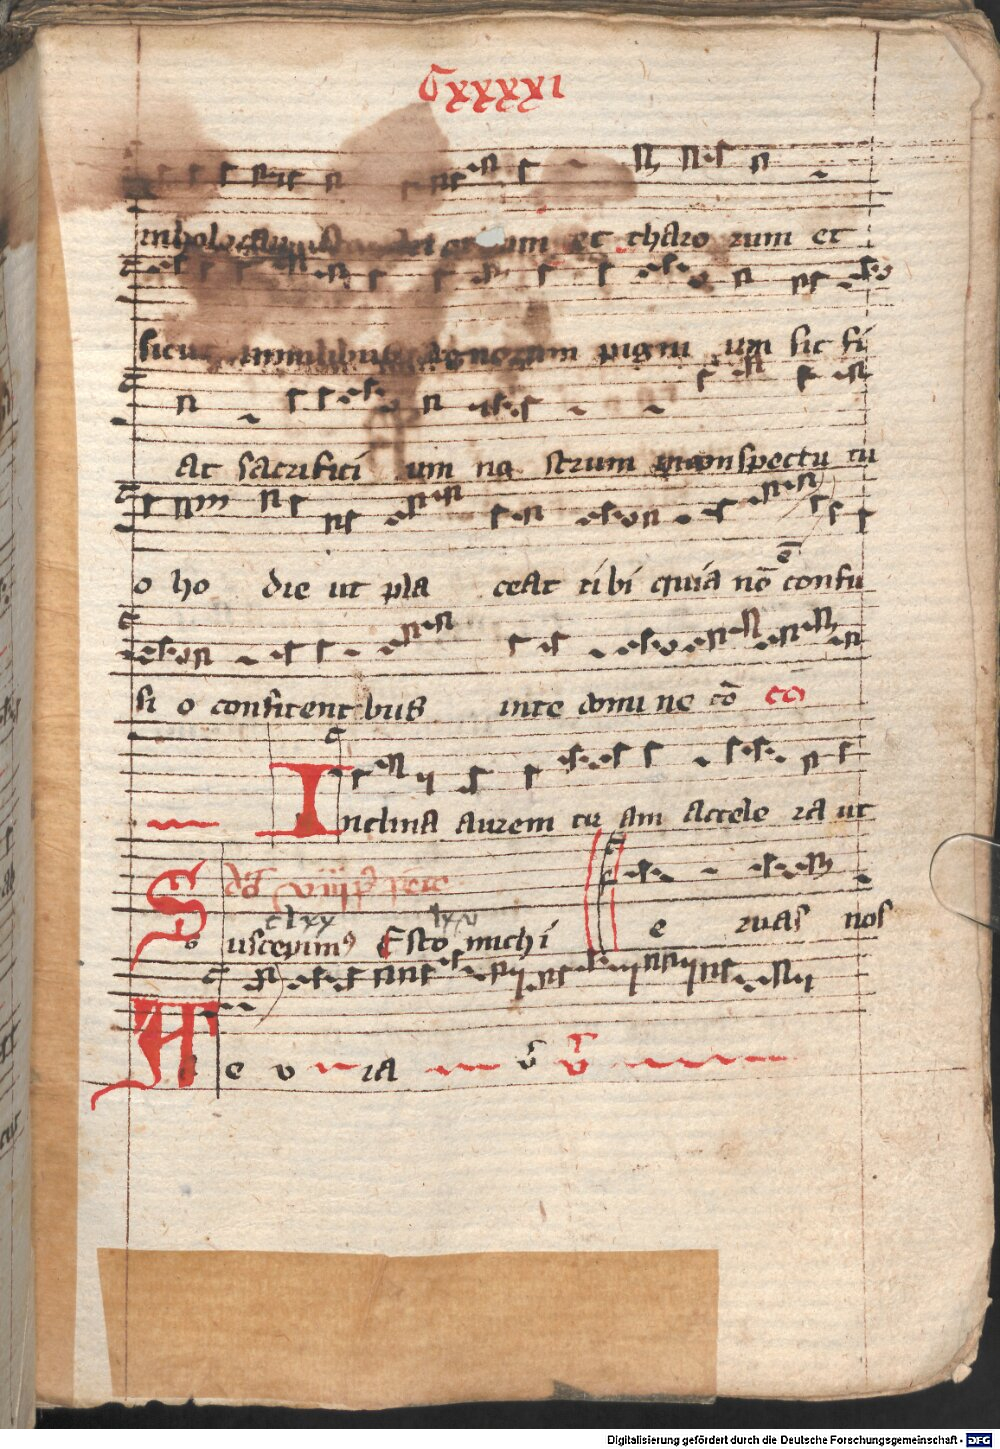 Cxxxxi
in holocaustum arietum et thauro rum et
sicut in milibus agnorum pigwi um sic fi
at sacrifici um no strum in conspectu tu
o ho die ut pla ceat tibi quia nō ē confu
si o confitentibus in te domi ne cō cō
Inclina aurem tu am accele ra ut
clxx lxv
Suscepimꝰ Esto michi e ruas nos
Ae v ia v̄ v̄
Digitalisierung gefördert durch die Deutsche Forschungsgemeinschaft - DFG